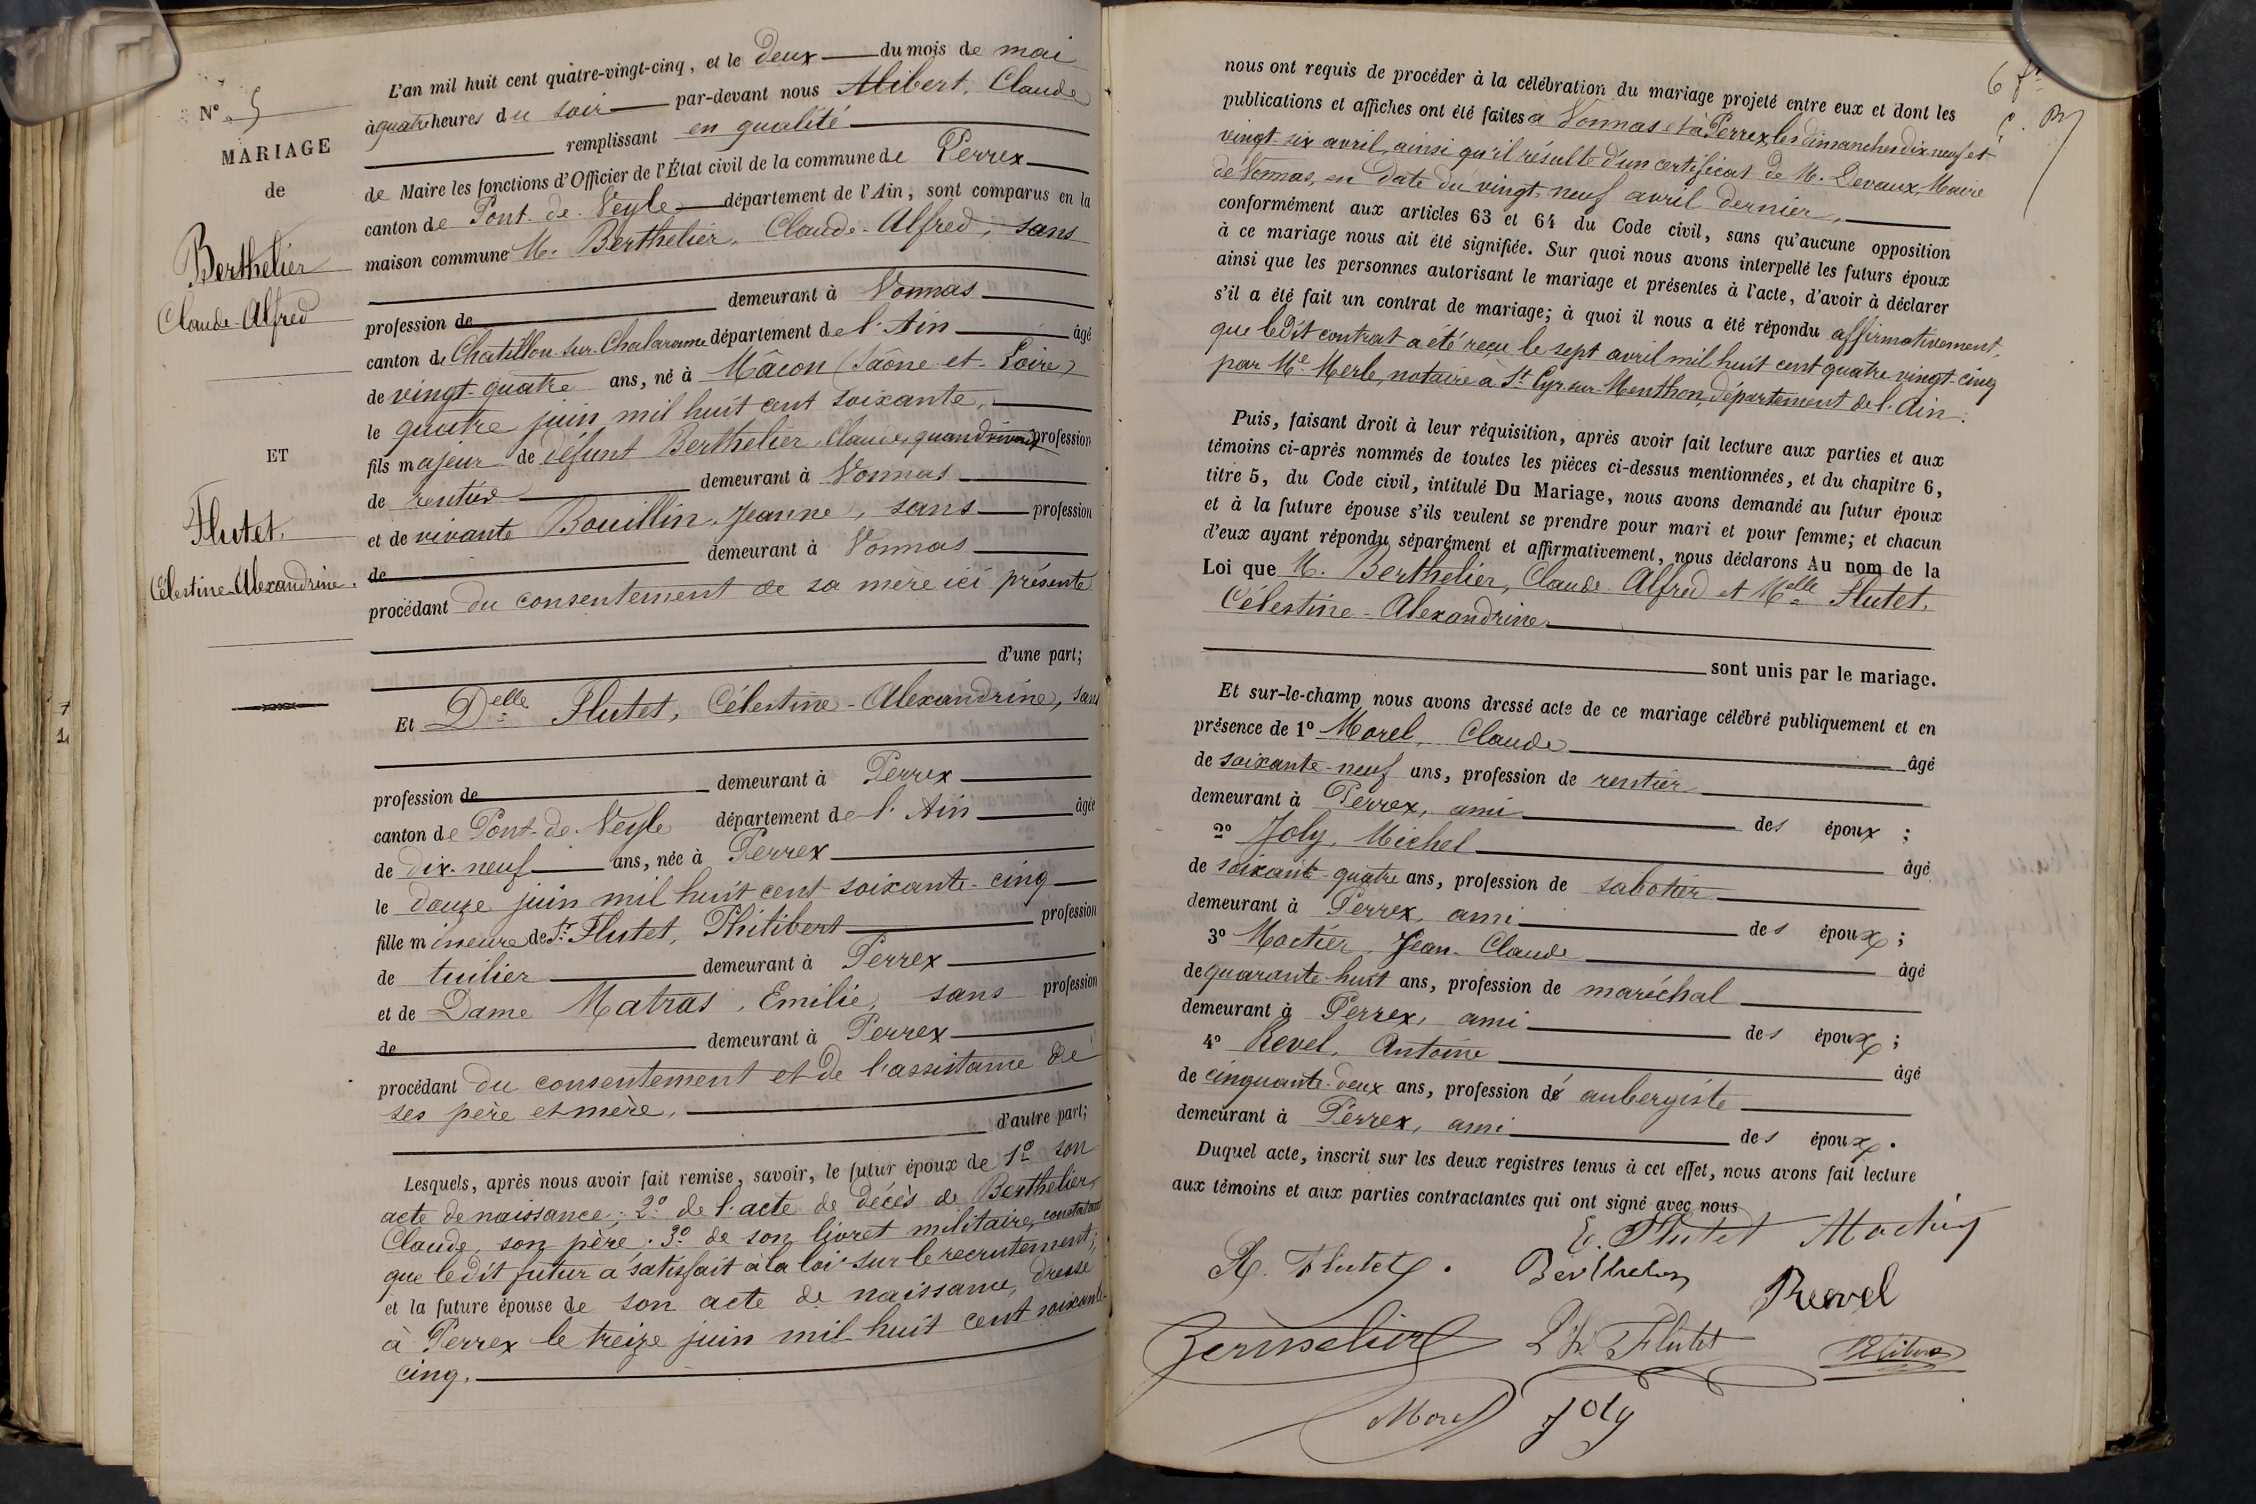 N° 5
MARIAGE
de
Berthelier
Claude-Alfred
ET
Flutet,
Célestine Alexandrine.
L'an mil huit cent quatre-vingt-cinq, et le deux du mois de mai
à quatre heures du soir par-devant nous Alibert, Claude
remplissant en qualité
de Maire les fonctions d'Officier de l'État civil de la commune de Perrex
canton de Pont-de-Veyle département de l'Ain, sont comparus en la
maison commune M. Berthelier, Claude-Alfred, sans
profession de demeurant à Vonnas
canton de Chatillon-sur-Chalaronne département de l'Ain âgé
de vingt-quatre ans, né à Mâcon (Saône-et-Loire)
le quatre juin mil huit cent soixante,
fils majeur de défunt Berthelier, Claude, quand vivait profession
de rentier demeurant à Vonnas
et de vivante Bouillin, Jeanne, sans profession
de demeurant à Vonnas
procédant du consentement de sa mère ici présente
d'une part;
Et Delle Flutet, Célestine-Alexandrine, sans
profession de demeurant à Perrex
canton de Pont-de-Veyle département de l'Ain âgée
de dix-neuf ans, née à Perrex
le douze juin mil huit cent soixante-cinq
fille mineure de Sr Flutet, Philibert profession
de tuilier demeurant à Perrex
et de Dame Matras, Emilie, sans profession
de demeurant à Perrex
procédant du consentement et de l'assistance de
ses père et mère,
d'autre part;
Lesquels, après nous avoir fait remise, savoir, le futur époux de 1° son
acte de naissance; 2° de l'acte de décès de Berthelier,
Claude, son père. 3° de son livret militaire, constatant
que ledit futur a satisfait à la loi sur le recrutement;
et la future épouse de son acte de naissance, dressé
à Perrex le treize juin mil huit cent soixante-
cinq.
nous ont requis de procéder à la célébration du mariage projeté entre eux et dont les
publications et affiches ont été faites à Vonnas et à Perrex, les dimanches dix neuf et
vingt-six avril, ainsi qu'il résulte d'un certificat de M. Devaux, Maire
de Vonnas, en date du vingt-neuf avril dernier,
conformément aux articles 63 et 64 du Code civil, sans qu'aucune opposition
à ce mariage nous ait été signifiée. Sur quoi nous avons interpellé les futurs époux
ainsi que les personnes autorisant le mariage et présentes à l'acte, d'avoir à déclarer
s'il a été fait un contrat de mariage; à quoi il nous a été répondu affirmativement,
que ledit contrat a été reçu le sept avril mil huit cent quatre vingt-cinq
par Me Merle, notaire à St Cyr-sur-Menthon, département de l'Ain.
Puis, faisant droit à leur réquisition, après avoir fait lecture aux parties et aux
témoins ci-après nommés de toutes les pièces ci-dessus mentionnées, et du chapitre 6,
titre 5, du Code civil, intitulé Du Mariage, nous avons demandé au futur époux
et à la future épouse s'ils veulent se prendre pour mari et pour femme; et chacun
d'eux ayant répondu séparément et affirmativement, nous déclarons Au nom de la
Loi que M. Berthelier, Claude Alfred et Melle Flutet,
Célestine-Alexandrine
sont unis par le mariage.
Et sur-le-champ nous avons dressé acte de ce mariage célébré publiquement et en
présence de 1° Morel, Claude
âgé
de soixante-neuf ans, profession de rentier
demeurant à Perrex, ami des époux ;
2° Joly, Michel
âgé
de soixante-quatre ans, profession de sabotier
demeurant à Perrex, ami des époux ;
3° Moctier, Jean-Claude
âgé
de quarante-huit ans, profession de maréchal
demeurant à Perrex, ami des époux ;
4° Revel, Antoine
âgé
de cinquante-deux ans, profession de aubergiste
demeurant à Perrex, ami des époux.
Duquel acte, inscrit sur les deux registres tenus à cet effet, nous avons fait lecture
aux témoins et aux parties contractantes qui ont signé avec nous
C. Flutet
A. Flutet. Revel
Ph Flutet
Morel Joly